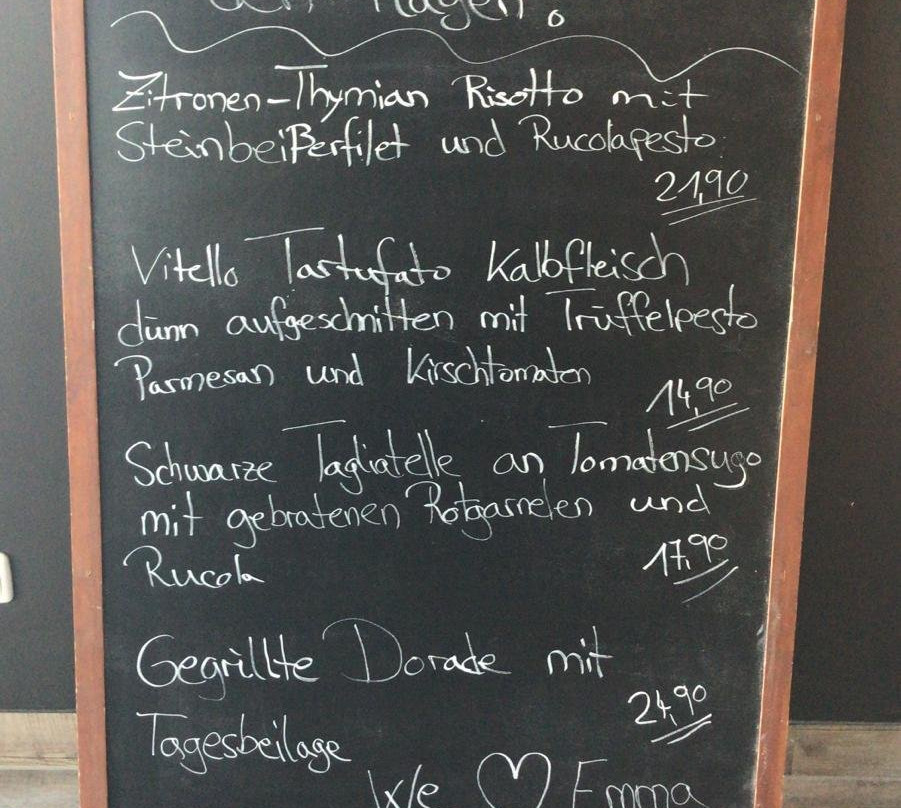 den Magen.
Zitronen-Thymian Risotto mit
Steinbeißerfilet und Rucolapesto
21,90
Vitello Tartufato Kalbfleisch
dünn aufgeschnitten mit Trüffelpesto
Parmesan und Kirschtomaten
14,90
Schwarze Tagliatelle an Tomatensugo
mit gebratenen Rotgarnelen und
Rucola
17,90
Gegrillte Dorade mit
Tagesbeilage
24,90
We ♡ Emma